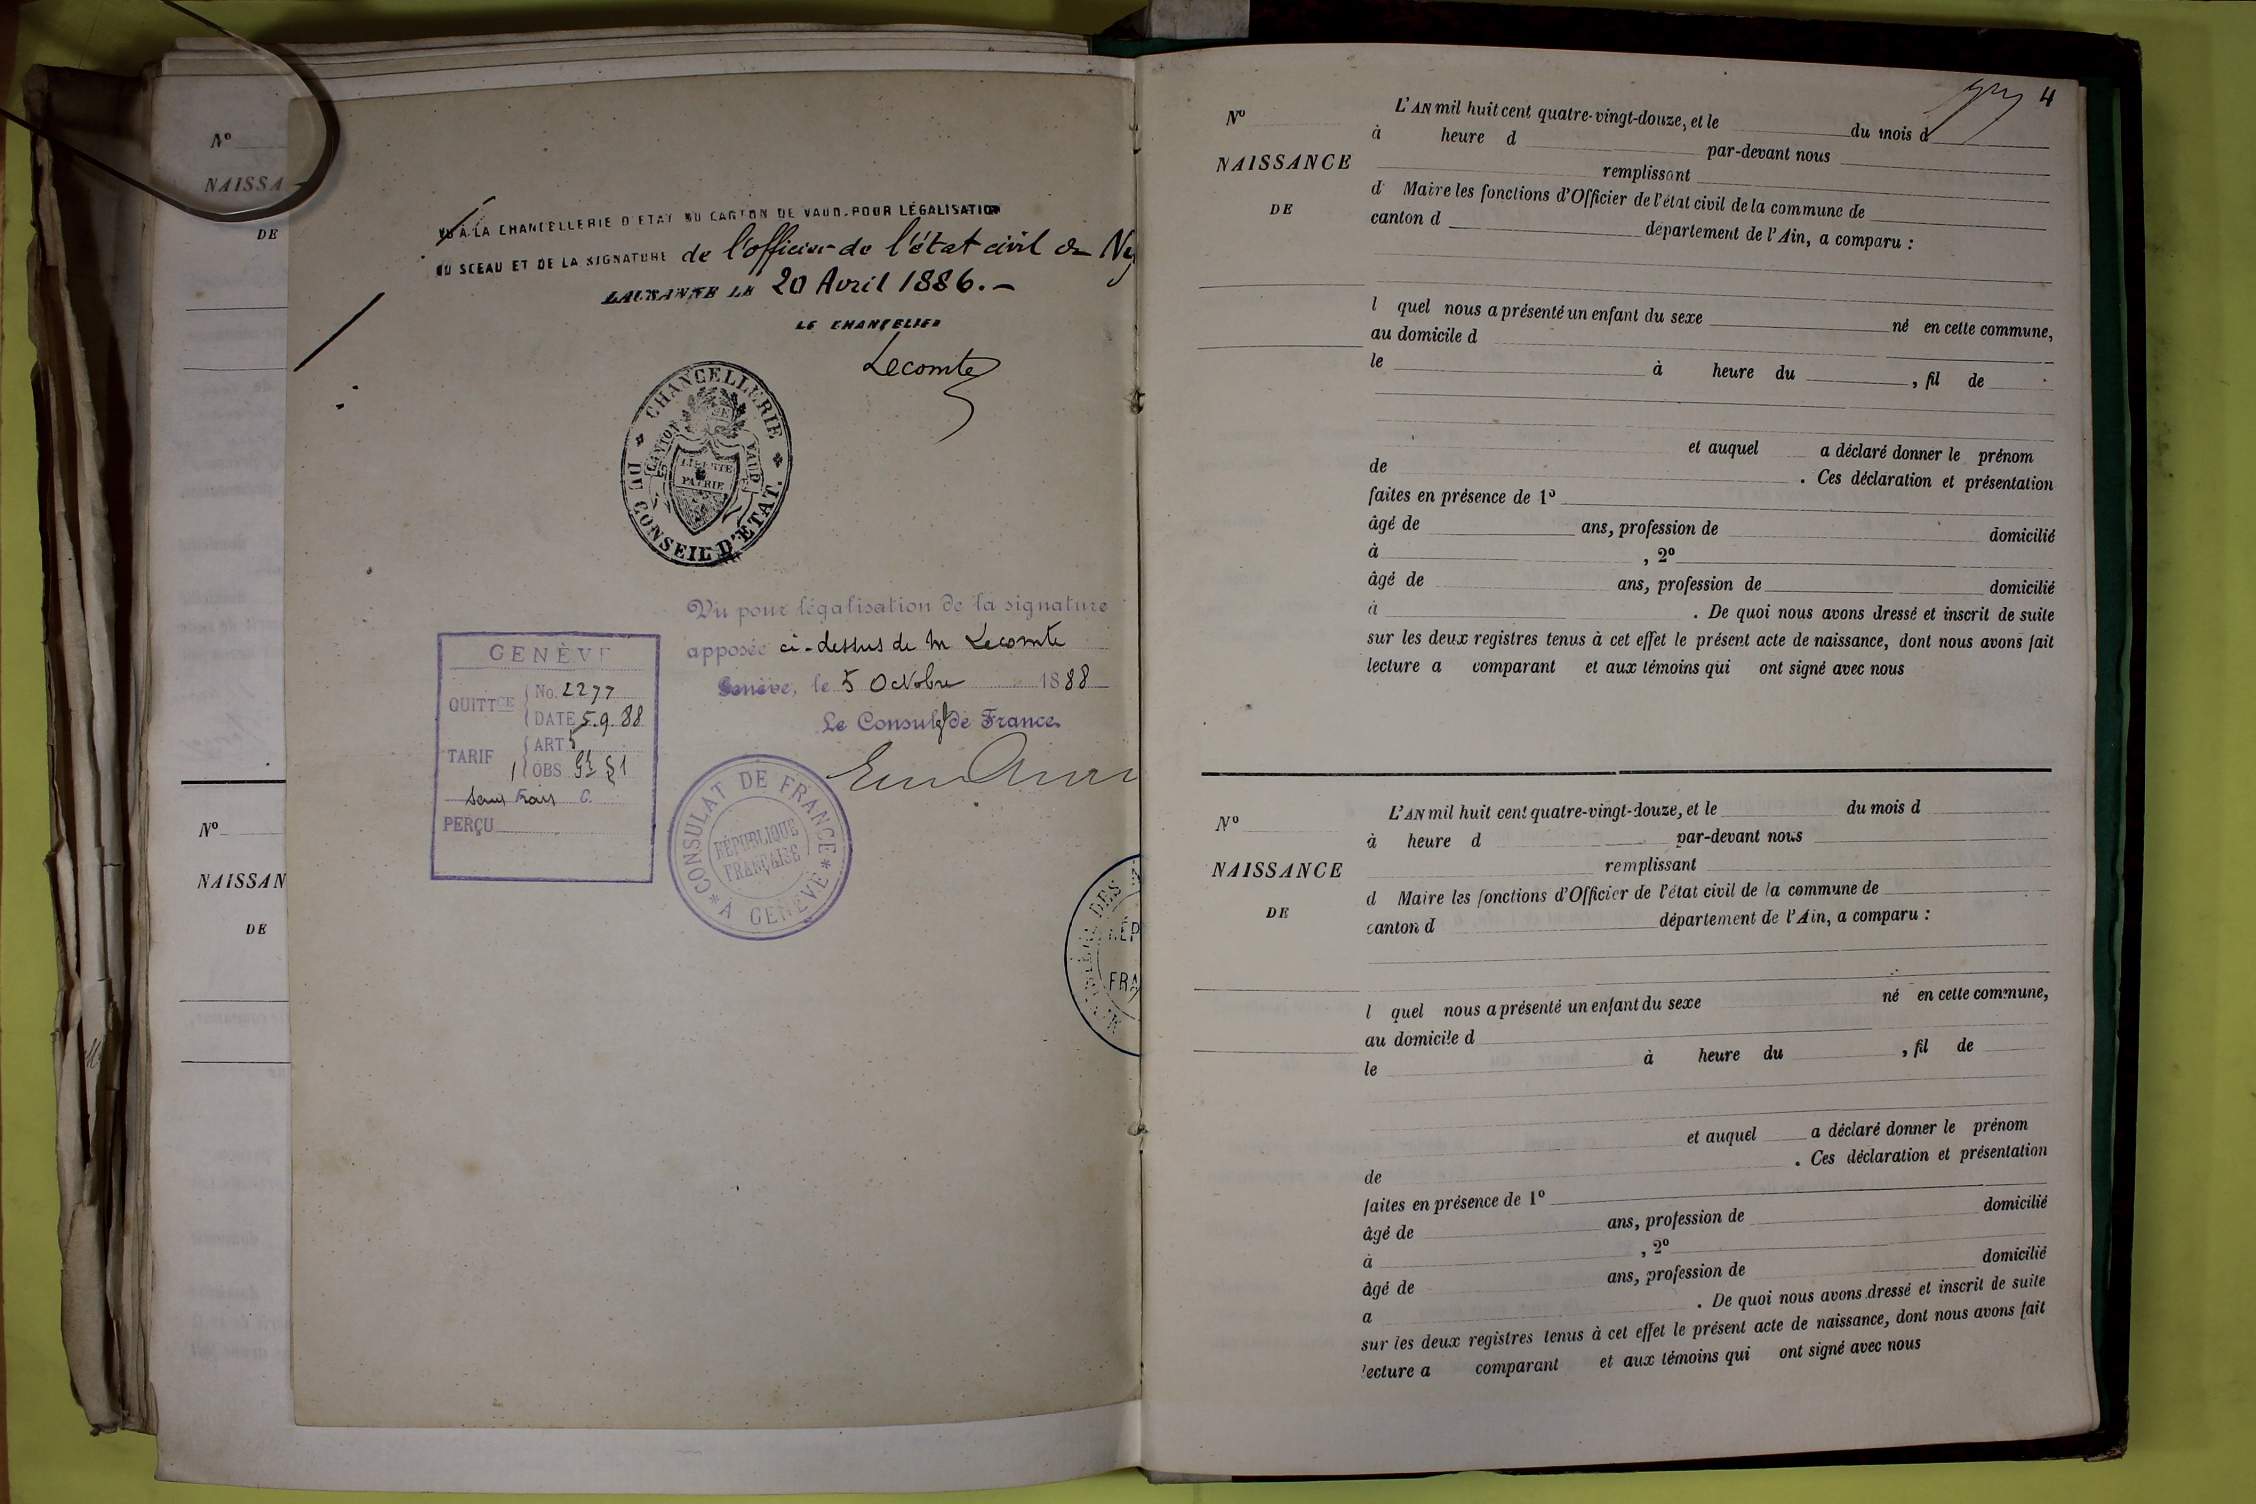 Nº
NAISSA
DE
Nº
NAISSAN
DE
VU À LA CHANCELLERIE D'ETAT DU CANTON DE VAUD. POUR LÉGALISATION
DU SCEAU ET DE LA SIGNATURE de l'officier de l'état civil de Ny
LAUSANNE LE 20 Avril 1886.-
LE CHANCELIER
Lecomte
CHANCELLERIE
DU CONSEIL D'ETAT.
CANTON DE VAUD
LIBERTE
ET
PATRIE
Vu pour légalisation de la signature
apposée ci-dessus de M Lecomte
Genève, le 5 Octobre 1888
Le Consul de France
GENÈVE
QUITTCE No. 2277
DATE 5.9.88
TARIF ART 5
OBS § 1
Sans Frais C.
PERÇU
CONSULAT DE FRANCE
À GENÈVE
RÉPUBLIQUE
FRANÇAISE
DES
RÉP
FRA
4
Nº
NAISSANCE
DE
L'AN mil huit cent quatre-vingt-douze, et le du mois d
à heure d par-devant nous
remplissant
d Maire les fonctions d'Officier de l'état civil de la commune de
canton d département de l'Ain, a comparu :
l quel nous a présenté un enfant du sexe né en cette commune,
au domicile d
le à heure du , fil de
et auquel a déclaré donner le prénom
de . Ces déclaration et présentation
faites en présence de 1º
âgé de ans, profession de domicilié
à , 2º
âgé de ans, profession de domicilié
à . De quoi nous avons dressé et inscrit de suite
sur les deux registres tenus à cet effet le présent acte de naissance, dont nous avons fait
lecture a comparant et aux témoins qui ont signé avec nous
Nº
NAISSANCE
DE
L'AN mil huit cent quatre-vingt-douze, et le du mois d
à heure d par-devant nous
remplissant
d Maire les fonctions d'Officier de l'état civil de la commune de
canton d département de l'Ain, a comparu :
l quel nous a présenté un enfant du sexe né en cette commune,
au domicile d
le à heure du , fil de
et auquel a déclaré donner le prénom
de . Ces déclaration et présentation
faites en présence de 1º
âgé de ans, profession de domicilié
à , 2º
âgé de ans, profession de domicilié
a . De quoi nous avons dressé et inscrit de suite
sur les deux registres tenus à cet effet le présent acte de naissance, dont nous avons fait
lecture a comparant et aux témoins qui ont signé avec nous